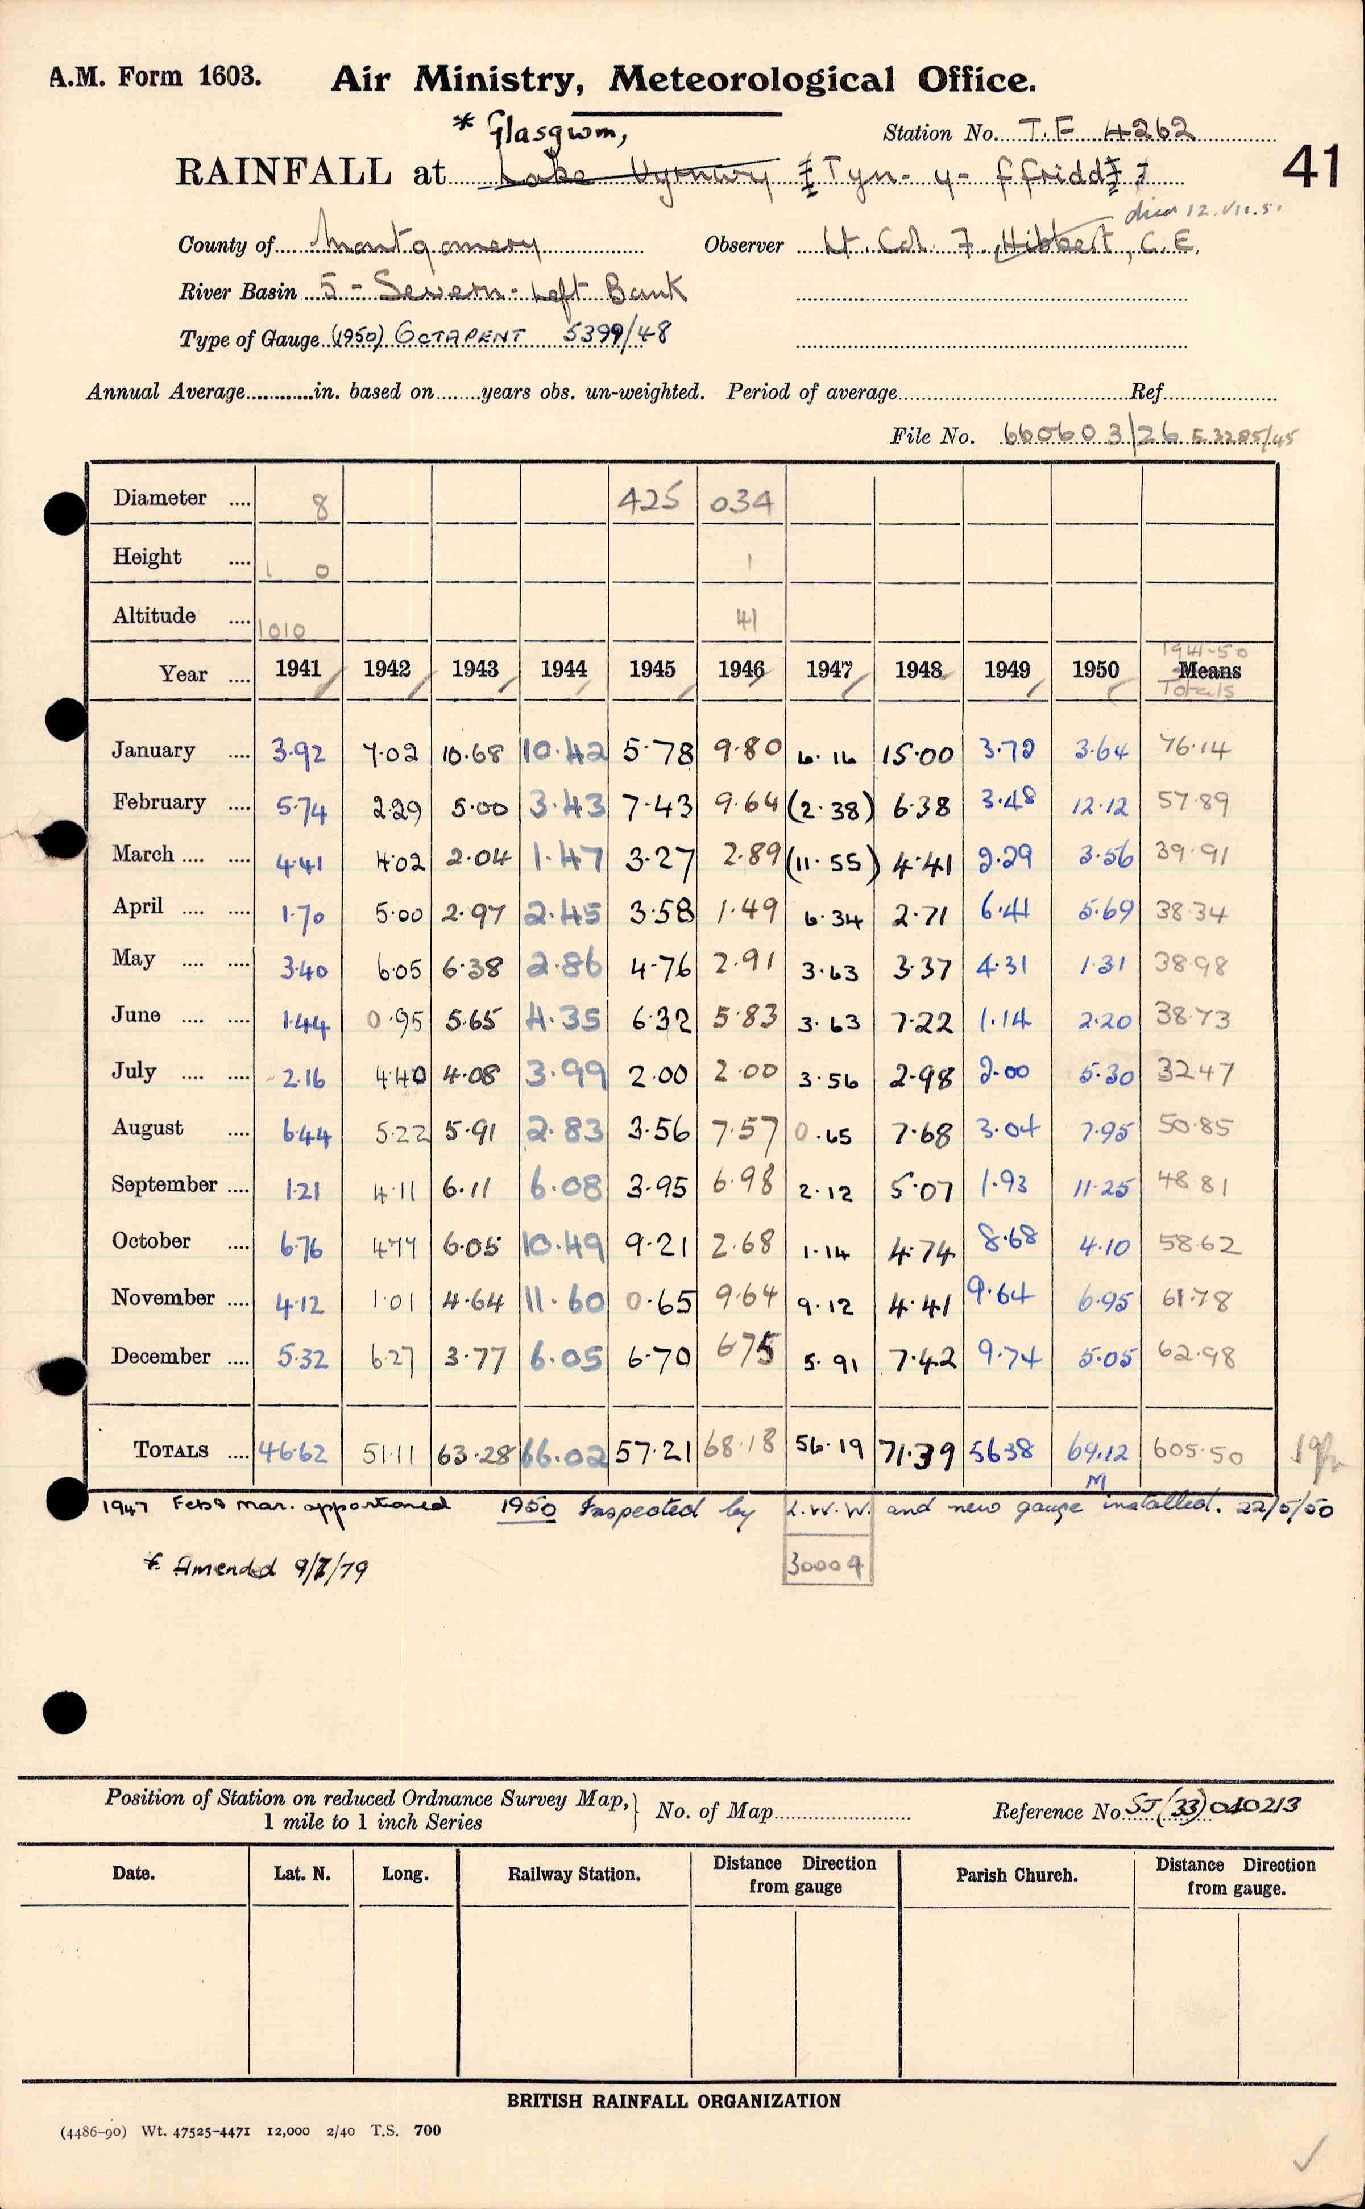 A.M. Form 1603. Air Ministry, Meteorological Office.
* Glasgwm,
Station No. T.F 4262
RAINFALL at Lake Vyrnwy Tyn-y-ffridd 41
died 12.VII.51
County of Montgomery Observer Lt. Col. F. Hibbert, C.E.
River Basin 5 - Severn - Left Bank
Type of Gauge (1950) OCTAPENT 5399/48
Annual Average in. based on years obs. un-weighted. Period of average Ref
File No. 660603/26 E.3285/45
Diameter .... 8 425 034
Height .... 1 0 1
Altitude .... 1010 41
1941-50
Year .... 1941 1942 1943 1944 1945 1946 1947 1948 1949 1950 Means
Totals
January .... 3.92 7.02 10.68 10.42 5.78 9.80 6.16 15.00 3.72 3.64 76.14
February .... 5.74 2.29 5.00 3.43 7.43 9.64 (2.38) 6.38 3.48 12.12 57.89
March .... .... 4.41 4.02 2.04 1.47 3.27 2.89 (11.55) 4.41 2.29 3.56 39.91
April .... .... 1.70 5.00 2.97 2.45 3.58 1.49 6.34 2.71 6.41 5.69 38.34
May .... .... 3.40 6.05 6.38 2.86 4.76 2.91 3.63 3.37 4.31 1.31 38.98
June .... .... 1.44 0.95 5.65 4.35 6.32 5.83 3.63 7.22 1.14 2.20 38.73
July .... .... 2.16 4.40 4.08 3.99 2.00 2.00 3.56 2.98 2.00 5.30 32.47
August .... 6.44 5.22 5.91 2.83 3.56 7.57 0.65 7.68 3.04 7.95 50.85
September .... 1.21 4.11 6.11 6.08 3.95 6.98 2.12 5.07 1.93 11.25 48.81
October .... 6.76 4.77 6.05 10.49 9.21 2.68 1.14 4.74 8.68 4.10 58.62
November .... 4.12 1.01 4.64 11.60 0.65 9.64 9.12 4.41 9.64 6.95 61.78
December .... 5.32 6.27 3.77 6.05 6.70 6.75 5.91 7.42 9.74 5.05 62.98
TOTALS .... 46.62 51.11 63.28 66.02 57.21 68.18 56.19 71.39 56.38 69.12 605.50
M
1947 Feb & Mar. apportioned 1950 Inspected by L.W.W. and new gauge installed. 22/5/50
* Amended 9/7/79
30009
Position of Station on reduced Ordnance Survey Map, 1 mile to 1 inch Series } No. of Map Reference No. SJ(33)040213
Date. Lat. N. Long. Railway Station. Distance Direction from gauge Parish Church. Distance Direction from gauge.
BRITISH RAINFALL ORGANIZATION
(4486-90) Wt. 47525-4471 12,000 2/40 T.S. 700